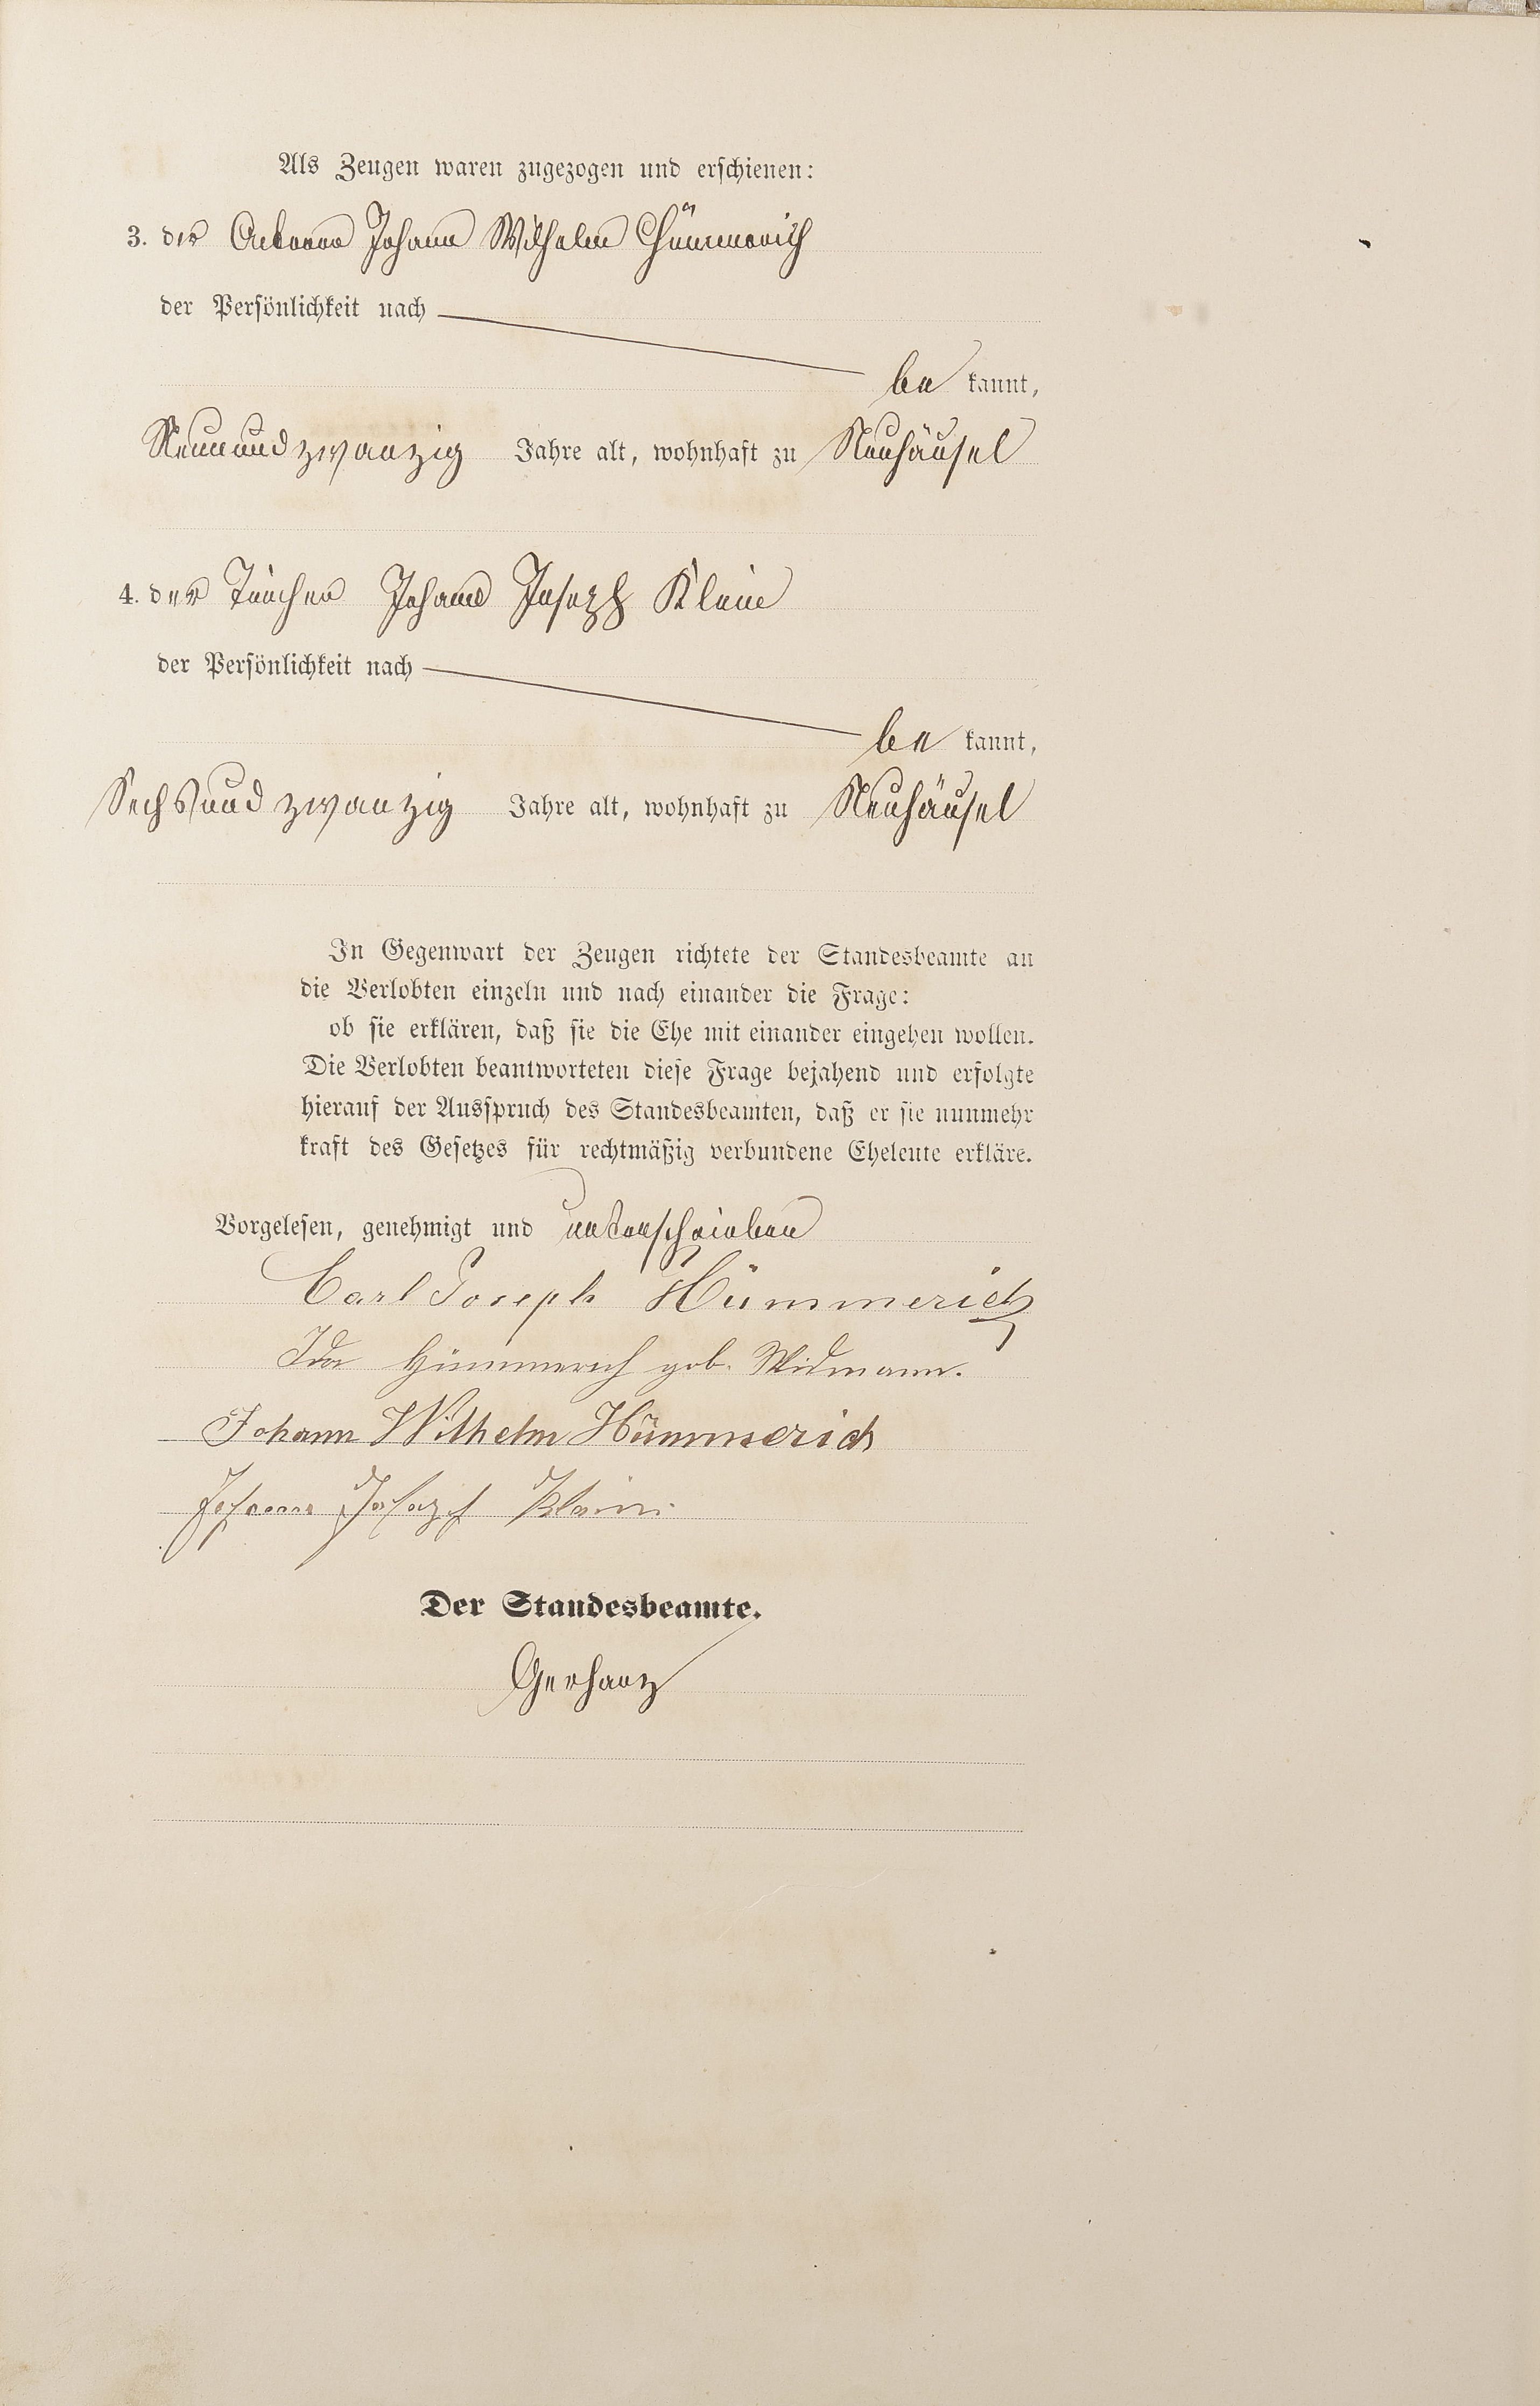 Als Zeugen waren zugezogen und erschienen:
3. der Ackerer Johann Wilhelm Hümmerich
der Persönlichkeit nach
be kannt,
Neunundzwanzig Jahre alt, wohnhaft zu Neuhäusel
4. der Tüncher Johann Joseph Klein
der Persönlichkeit nach
be kannt,
Sechsundzwanzig Jahre alt, wohnhaft zu Neuhäusel
In Gegenwart der Zeugen richtete der Standesbeamte an
die Verlobten einzeln und nach einander die Frage:
ob sie erklären, daß sie die Ehe mit einander eingehen wollen.
Die Verlobten beantworteten diese Frage bejahend und erfolgte
hierauf der Ausspruch des Standesbeamten, daß er sie nunmehr
kraft des Gesetzes für rechtmäßig verbundene Eheleute erkläre.
Vorgelesen, genehmigt und unterschrieben
Carl Joseph Hümmerich
Ida Hümmerich geb. Widmann.
Johann Wilhelm Hümmerich
Johann Josepf Klein
Der Standesbeamte.
Gerhanz